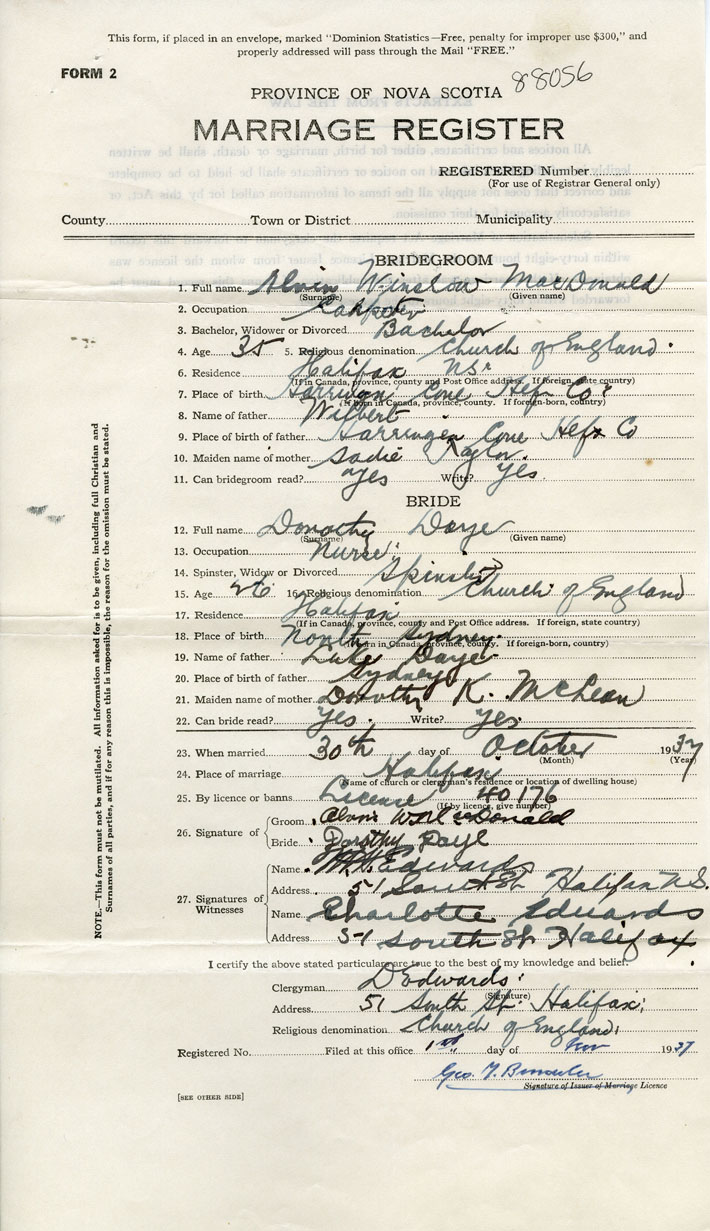 This form, if placed in an envelope, marked "Dominion Statistics—Free, penalty for improper use $300," and
properly addressed will pass through the Mail "FREE."
FORM 2
88056
PROVINCE OF NOVA SCOTIA
MARRIAGE REGISTER
REGISTERED Number
(For use of Registrar General only)
County Town or District Municipality
BRIDEGROOM
1. Full name Alvin Winslow MacDonald
(Surname) (Given name)
2. Occupation
3. Bachelor, Widower or Divorced Bachelor
4. Age 35 5. Religious denomination Church of England.
6. Residence Halifax N.S.
(If in Canada, province, county and Post Office address. If foreign, state country)
7. Place of birth Cove Hfx Co.
(If born in Canada, province, county. If foreign-born, country)
8. Name of father Wilbert
9. Place of birth of father Cove Hfx Co
10. Maiden name of mother Sadie
11. Can bridegroom read? Yes Write? Yes.
BRIDE
12. Full name Dorothy Daye
(Surname) (Given name)
13. Occupation Nurse
14. Spinster, Widow or Divorced Spinster
15. Age 26 16. Religious denomination Church of England
17. Residence Halifax
(If in Canada, province, county and Post Office address. If foreign, state country)
18. Place of birth North Sydney.
(If born in Canada, province, county. If foreign-born, country)
19. Name of father Luke Daye
20. Place of birth of father Sydney
21. Maiden name of mother Dorothy K. McLean
22. Can bride read? Yes. Write? Yes.
23. When married 30th day of October 1937
(Month) (Year)
24. Place of marriage Halifax
(Name of church or clergyman's residence or location of dwelling house)
25. By licence or banns Licence 40176
(If by licence, give number)
26. Signature of
Groom Alvin W. MacDonald
Bride Dorothy Daye
27. Signatures of Witnesses
Name Edwards
Address 51 South St Halifax N.S.
Name Charlotte Edwards
Address 51 South St Halifax
I certify the above stated particulars are true to the best of my knowledge and belief.
Clergyman D Edwards
(Signature)
Address 51 South St. Halifax
Religious denomination Church of England
Registered No. Filed at this office 1st day of Nov 1937
Geo. T.
Signature of Issuer of Marriage Licence
[SEE OTHER SIDE]
NOTE.—This form must not be mutilated. All information asked for is to be given, including full Christian and
Surnames of all parties, and if for any reason this is impossible, the reason for the omission must be stated.